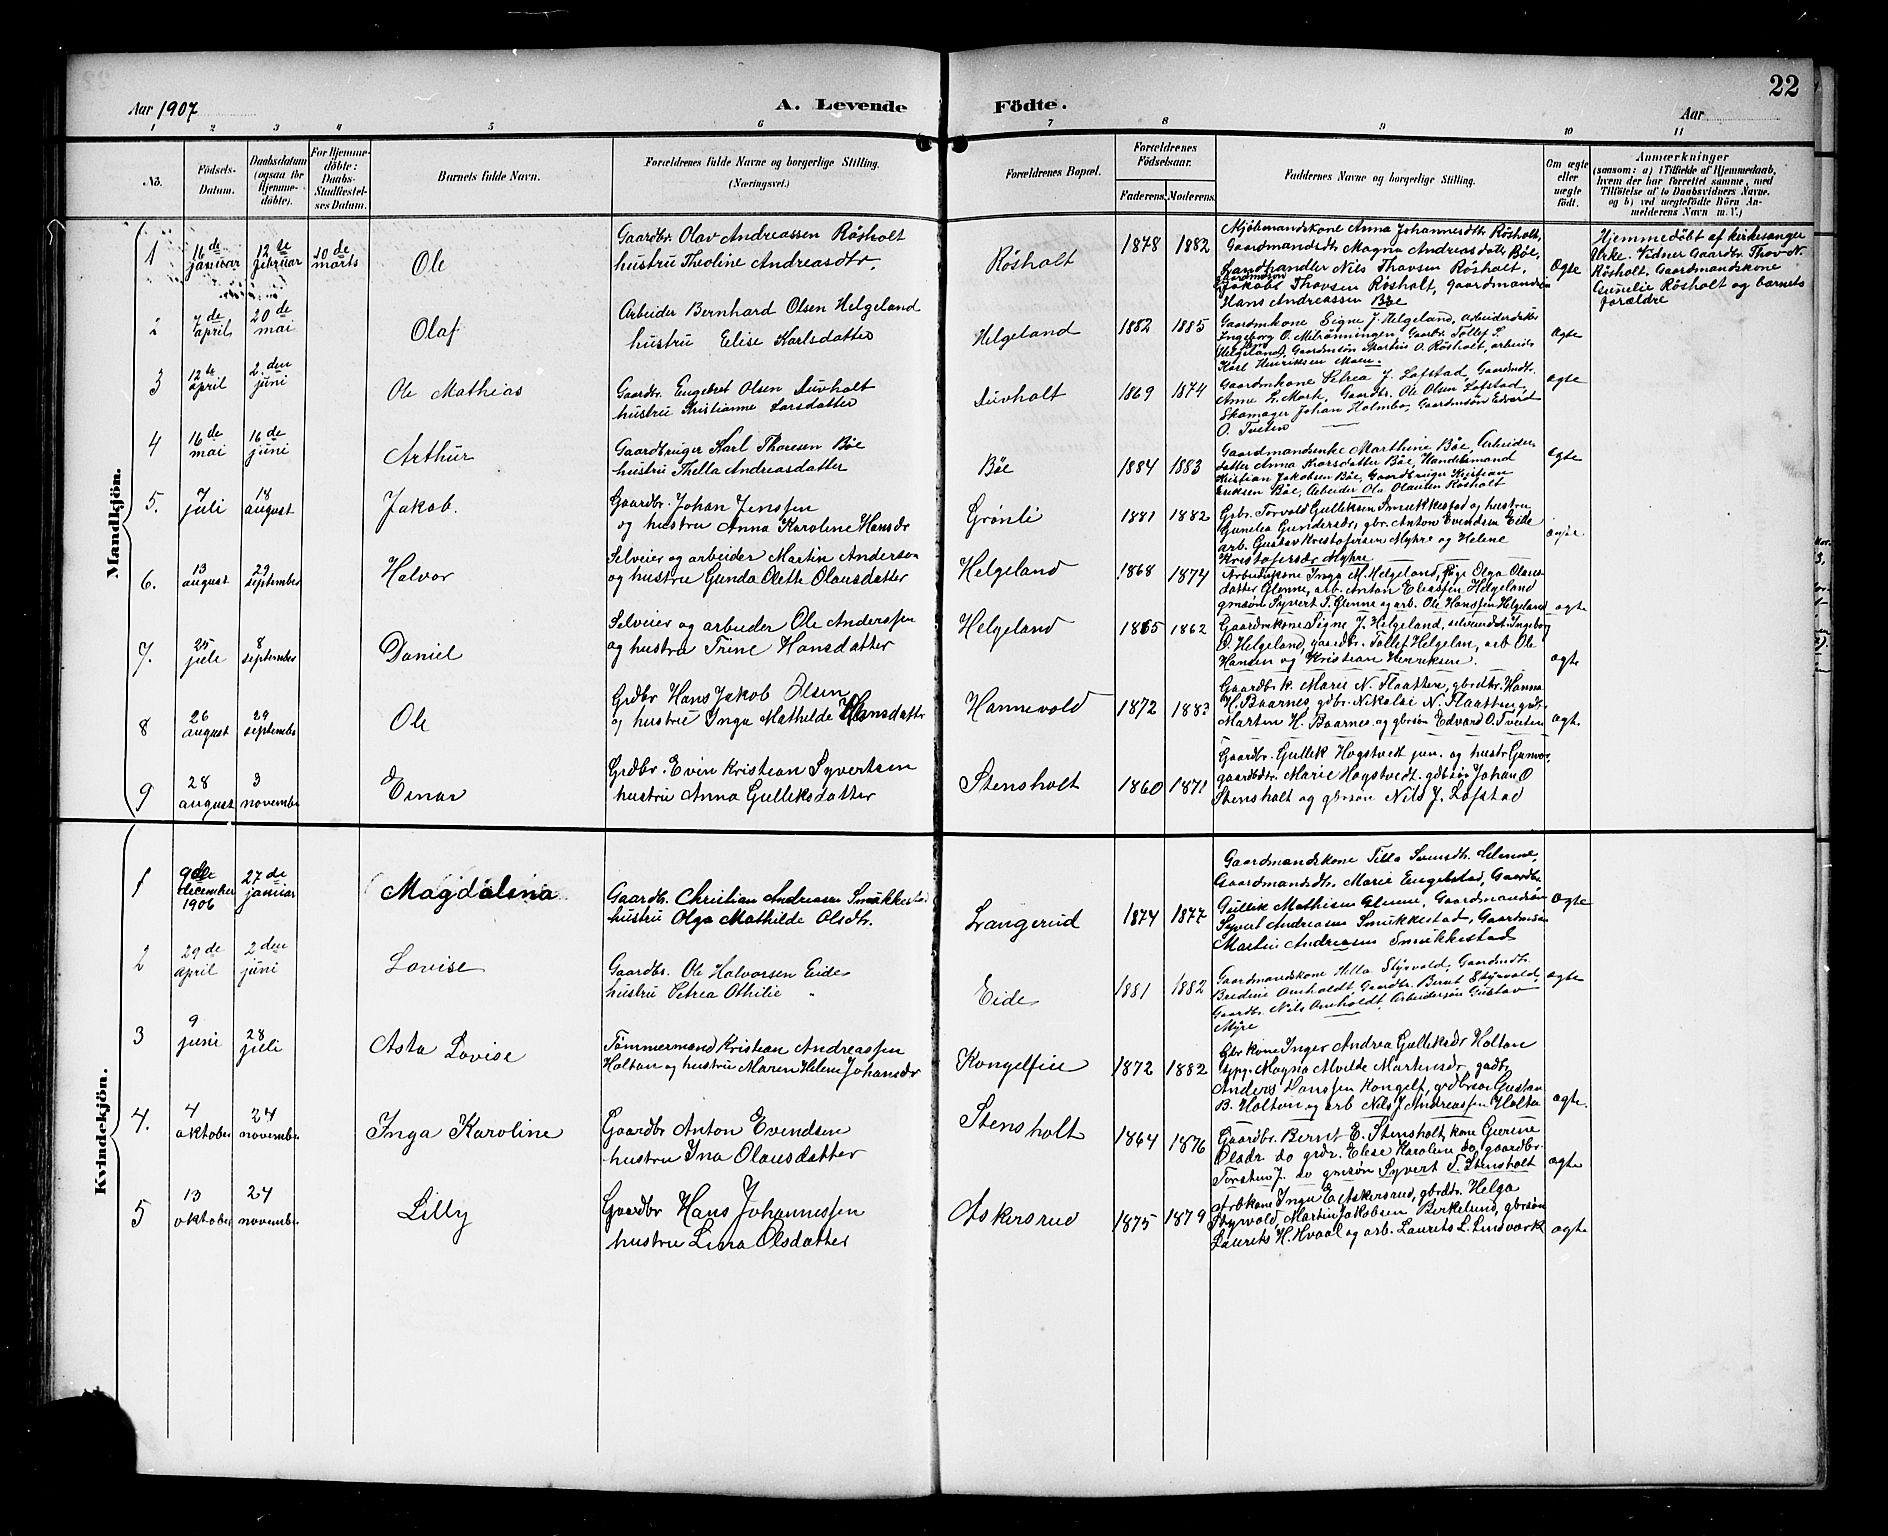 22
Aar 1907
A. Levende Födte.
Aar
1 2 3 4 5 6 7 8 9 10 11
No.
Födsels-
Datum.
Daabsdatum
(ogsaa for
Hjemme-
döbte).
For Hjemme-
döbte:
Daabs-
Stadfæstel-
ses Datum.
Barnets fulde Navn.
Forældrenes fulde Navne og borgerlige Stilling.
(Næringsvei.)
Forældrenes Bopæl.
Forældrenes
Födselsaar.
Faderens.
Moderens.
Faddernes Navne og borgerlige Stilling.
Om ægte
eller
uægte
födt.
Anmærkninger
(saasom: a) i Tilfælde af Hjemmedaab,
hvem der har forrettet samme, med
Tilföielse af to Daabsvidners Navne,
og b) ved uægtefödte Börn An-
melderens Navn m. V.)
Mandkjön.
1
16de januar
12te februar
10de marts
Ole
Gaardbr. Olav Andreassen Rösholt
hustru Theoline Andreasdtr.
Rösholt
1878 1882
Mjölnmandskone Anna Johannesdtr. Rösholt,
Gaardmandsdtr. Magna Andreasdatter Böe,
Landhandler Nils Thovsen Rösholt,
Jakobs Thovsen Rösholt, Gaardmandsøn
Hans Andreassen Böe
Ægte
Hjemmedöbt af kirkesanger
Urke. Vidner Gaardbr. Thov N.
Rösholt, Gaardmandskone
Gunelie Rösholt og barnets
forældre
2
7de april
20de mai
Olaf
Arbeider Bernhard Olsen Helgeland
hustru Elise Karlsdatter
Helgeland
1882 1885
Gaardmkone Signe J. Helgeland, arbeiderdatter
Ingeborg O. Melrönningen, Gaardbr. Tollef S.
Helgeland, Gaardmsön Martin O. Rösholt, arbeider
Karl Henriksen Moen.
ægte
3
12te april
2den juni
Ole Mathias
Gaardbr. Engebret Olsen Duvholt
hustru Kristianne Larsdatter
Duvholt
1869 1874
Gaardmkone Petrea J. Lofstad, Gaardmdtr.
Anne L. Mork, Gaardbr. Ole Olsen Lofstad,
Skomager Johan Holmbo, Gaardmsön Edvard
O. Tveten
ægte
4
16de mai
16de juni
Arthur
Gaardbruger Karl Thoresen Böe
hustru Thella Andreasdatter
Böe
1884 1883
Gaardmandsenke Marthine Böe, Arbeider-
datter Anna Knorsdatter Böe, Handelsmand
Kristian Jakobsen Böe, Gaardbruger Kristian
Eriksen Böe, Arbeider Ole Olausen Rösholt
ægte
5.
7 juli
18 august
Jakob.
Gaardbr. Johan Jenssen
og hustru Anna Karoline Hansdr
Grönli
1881 1882
Gbr. Torvald Gulliksen Smukkestad og hustru
Gunelea Gundersdr, gbr. Anton Evendsen Eide
arb. Gustav Kristofersen Myhre og Helene
Kristofersdr Myhre
ægte
6.
13 august
29 september
Halvor
Selveier og arbeider Martin Anderson
og hustru Gunda Olethe Olausdatter
Helgeland
1868 1874
Arbeidkone Inga M. Helgeland, pige Olga Olaus-
datter Glenne, arb. Anton Eliassen Helgeland
gmsön Syvert T. Glenne og arb. Ole Hanssen Helgeland
ægte
7.
25 juli
8 september
Daniel
Selveier og arbeider Ole Anderssen
og hustru Trine Hansdatter
Helgeland
1865 1862
Gaardbrkone Signe J. Helgeland, selveierdat. Ingeborg
O. Helgeland, gaardbr. Tollef Helgelan, arb Ole
Hansen og Kristian Henriksen.
ægte
8
26 august
29 september
Ole
Grdbr Hans Jakob Olsen
og hustru Inga Mathilde Hansdatter
Hannevold
1872 1883
Gaardbr k. Marie N. Flaatten, gbrdtr. Hanna
H. Baarnes, gdbr. Nikolai N. Flaatten grdt.
Marten H. Baarnes og gbrsön Edvard O. Tveiten
ægt.
9
28 august
3 november
Einar
Grdbr. Even Kristian Syvertsen
hustru Anna Gulliksdatter
Stensholt
1860 1871
Gaardbr. Gullik Hogstvedt jun. og hustr Gunvor,
gaardbdtr. Marie Hogstvedt. gdbrsön Johan O
Stensholt og gbrsön Nils J. Lofstad
Kvindekjön.
1
9de december 1906
27de januar
Magdalena
Gaardb. Christian Andreasen Smukkestad
hustru Olga Mathilde Olsdtr.
Langerud
1874 1877
Gaardmandskone Tilla Svensdtr. Glenne,
Gaardmandsdtr. Marie Engelstad, Gaardbr.
Gullik Mathisen Glenne, Gaardmandsön
Syvert Andreasen Smukkestad, Gaardmsön
Martin Andreasen Smukkestad
Ægte
2
29de april
2den juni
Lovise
Gaardbr. Ole Halvorsen Eide
hustru Petrea Othilie "
Eide
1881 1882
Gaardmandskone Hella Styrvold, Gaardmdtr.
Bredine Omholdt, Gaardbr. Bernt Styrvold,
Gaardbr. Nils Omholdt, Arbeidersön Gustav
Myre
ægte
3
9 juni
28 juli
Asta Lovise
Tömmermand Kristian Andreassen
Holtan og hustru Maren Helene Johansdr
Kongelfeie
1872 1882
Gbr kone Inger Andrea Gulliksdr Holtan
ypg. Magna Alvilde Martinsdr, gadbr.
Anders Hanssen Kongelf, grdbrsön Gustav
B. Holtan og arb Nils J. Andreassen Holta
ægte.
4.
4 oktober
24 november
Inga Karoline
Gaardbr Anton Evendsen
hustru Ina Olausdatter
Stensholt
1864 1876
Gaardbr. Bernt E. Stensholt, kone Gurine
Olsdr. do grdr. Elise Karoline do, gaardbr.
Torsten J. do gmsøn Syvert T. Stensholt
ægte
5
13 oktober
24 november
Lilly
Gaardbr Hans Johannessen
hustru Lina Olsdatter
Askersrud
1875 1879
Arbkone Inga E. Askersrud, gbrdtr. Helga
Styrvold, Martin Jakobsen Birkelund, gbrsön
Laurits H. Hvaal og arb. Laurits L. Lindvork
ægte